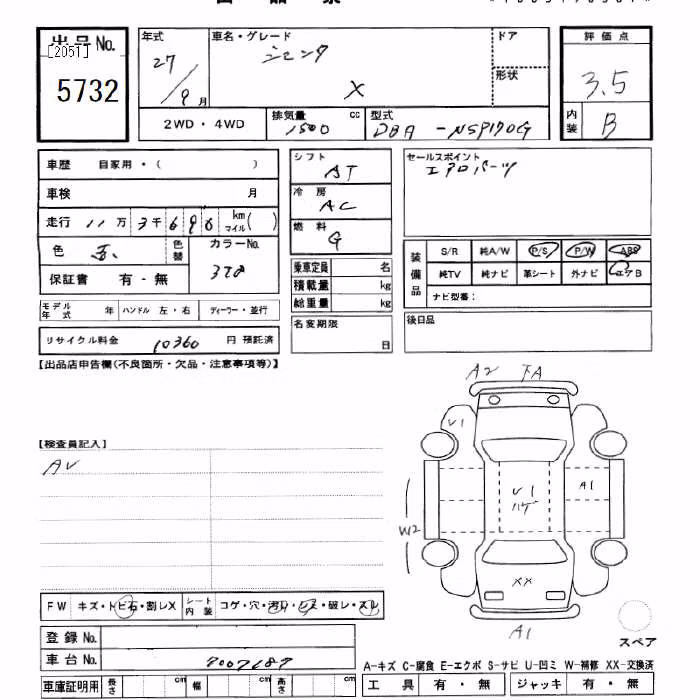 出品No. [2051]
5732
年式 27/9月
車名・グレード シエンタ X
ドア
形状
評価点 3.5
内装 B
2WD・4WD
排気量 1500 cc
型式 DBA-NSP170G
車歴 自家用・( )
車検 月
走行 11万3千690 km マイル( )
色 色替
カラーNo.
保証書 有・無
モデル年式 年 ハンドル 左・右 ディーラー・並行
リサイクル料金 10360 円 預託済
シフト AT
冷房 AC
燃料 G
乗車定員 名
積載量 kg
総重量 kg
名変期限 日
セールスポイント
エアロパーツ
装備品 S/R 純A/W P/S P/W ABS
純TV 純ナビ 革シート 外ナビ エアB
ナビ型番:
後日品
【出品店申告欄(不良箇所・欠品・注意事項等)】
【検査員記入】
AV
A2
V1
V1
ハゲ
A1
W2
XX
A1
スペア
FW キズ・トビ石・割レX シート内装 コゲ・穴・汚レ・シミ・破レ・スレ
登録No.
車台No. 7007187
車庫証明用 長さ cm 幅 cm 高さ cm
A-キズ C-腐食 E-エクボ S-サビ U-凹ミ W-補修 XX-交換済
工具 有・無 ジャッキ 有・無